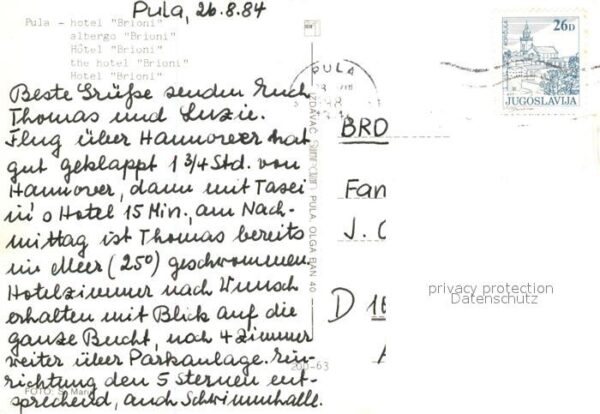 Pula, 26.8.84
Pula - hotel "Brioni"
albergo "Brioni"
Hôtel "Brioni"
the hotel "Brioni"
Hotel "Brioni"
Beste Grüße senden Euch
Thomas und Luzie.
Flug über Hannover hat
gut geklappt 1 3/4 Std. von
Hannover, dann mit Taxi
in's Hotel 15 Min., am Nach-
mittag ist Thomas bereits
im Meer (25°) geschwommen.
Hotelzimmer nach Wunsch
erhalten mit Blick auf die
ganze Bucht, noch 4 Zimmer
weiter über Parkanlage. Ein-
richtung den 5 Sternen ent-
sprechend, auch Schwimmhalle.
FOTO: S.
200-63
IZDAVAČ
PULA, OLGA BAN 40
PULA
26D
JUGOSLAVIJA
BRD
Fan
J.
D 1
privacy protection
Datenschutz